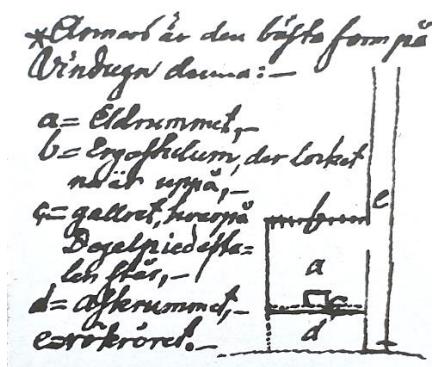 *Annars är den bästa form på
Vindugn denna:—
a= Eldrummet,—
b= der locket
nu är uppå,—
c= gallret, hvarpå
Degelpiedesta=
len står,—
d= askrummet,—
e=rökröret.—
b
e
a
c
d